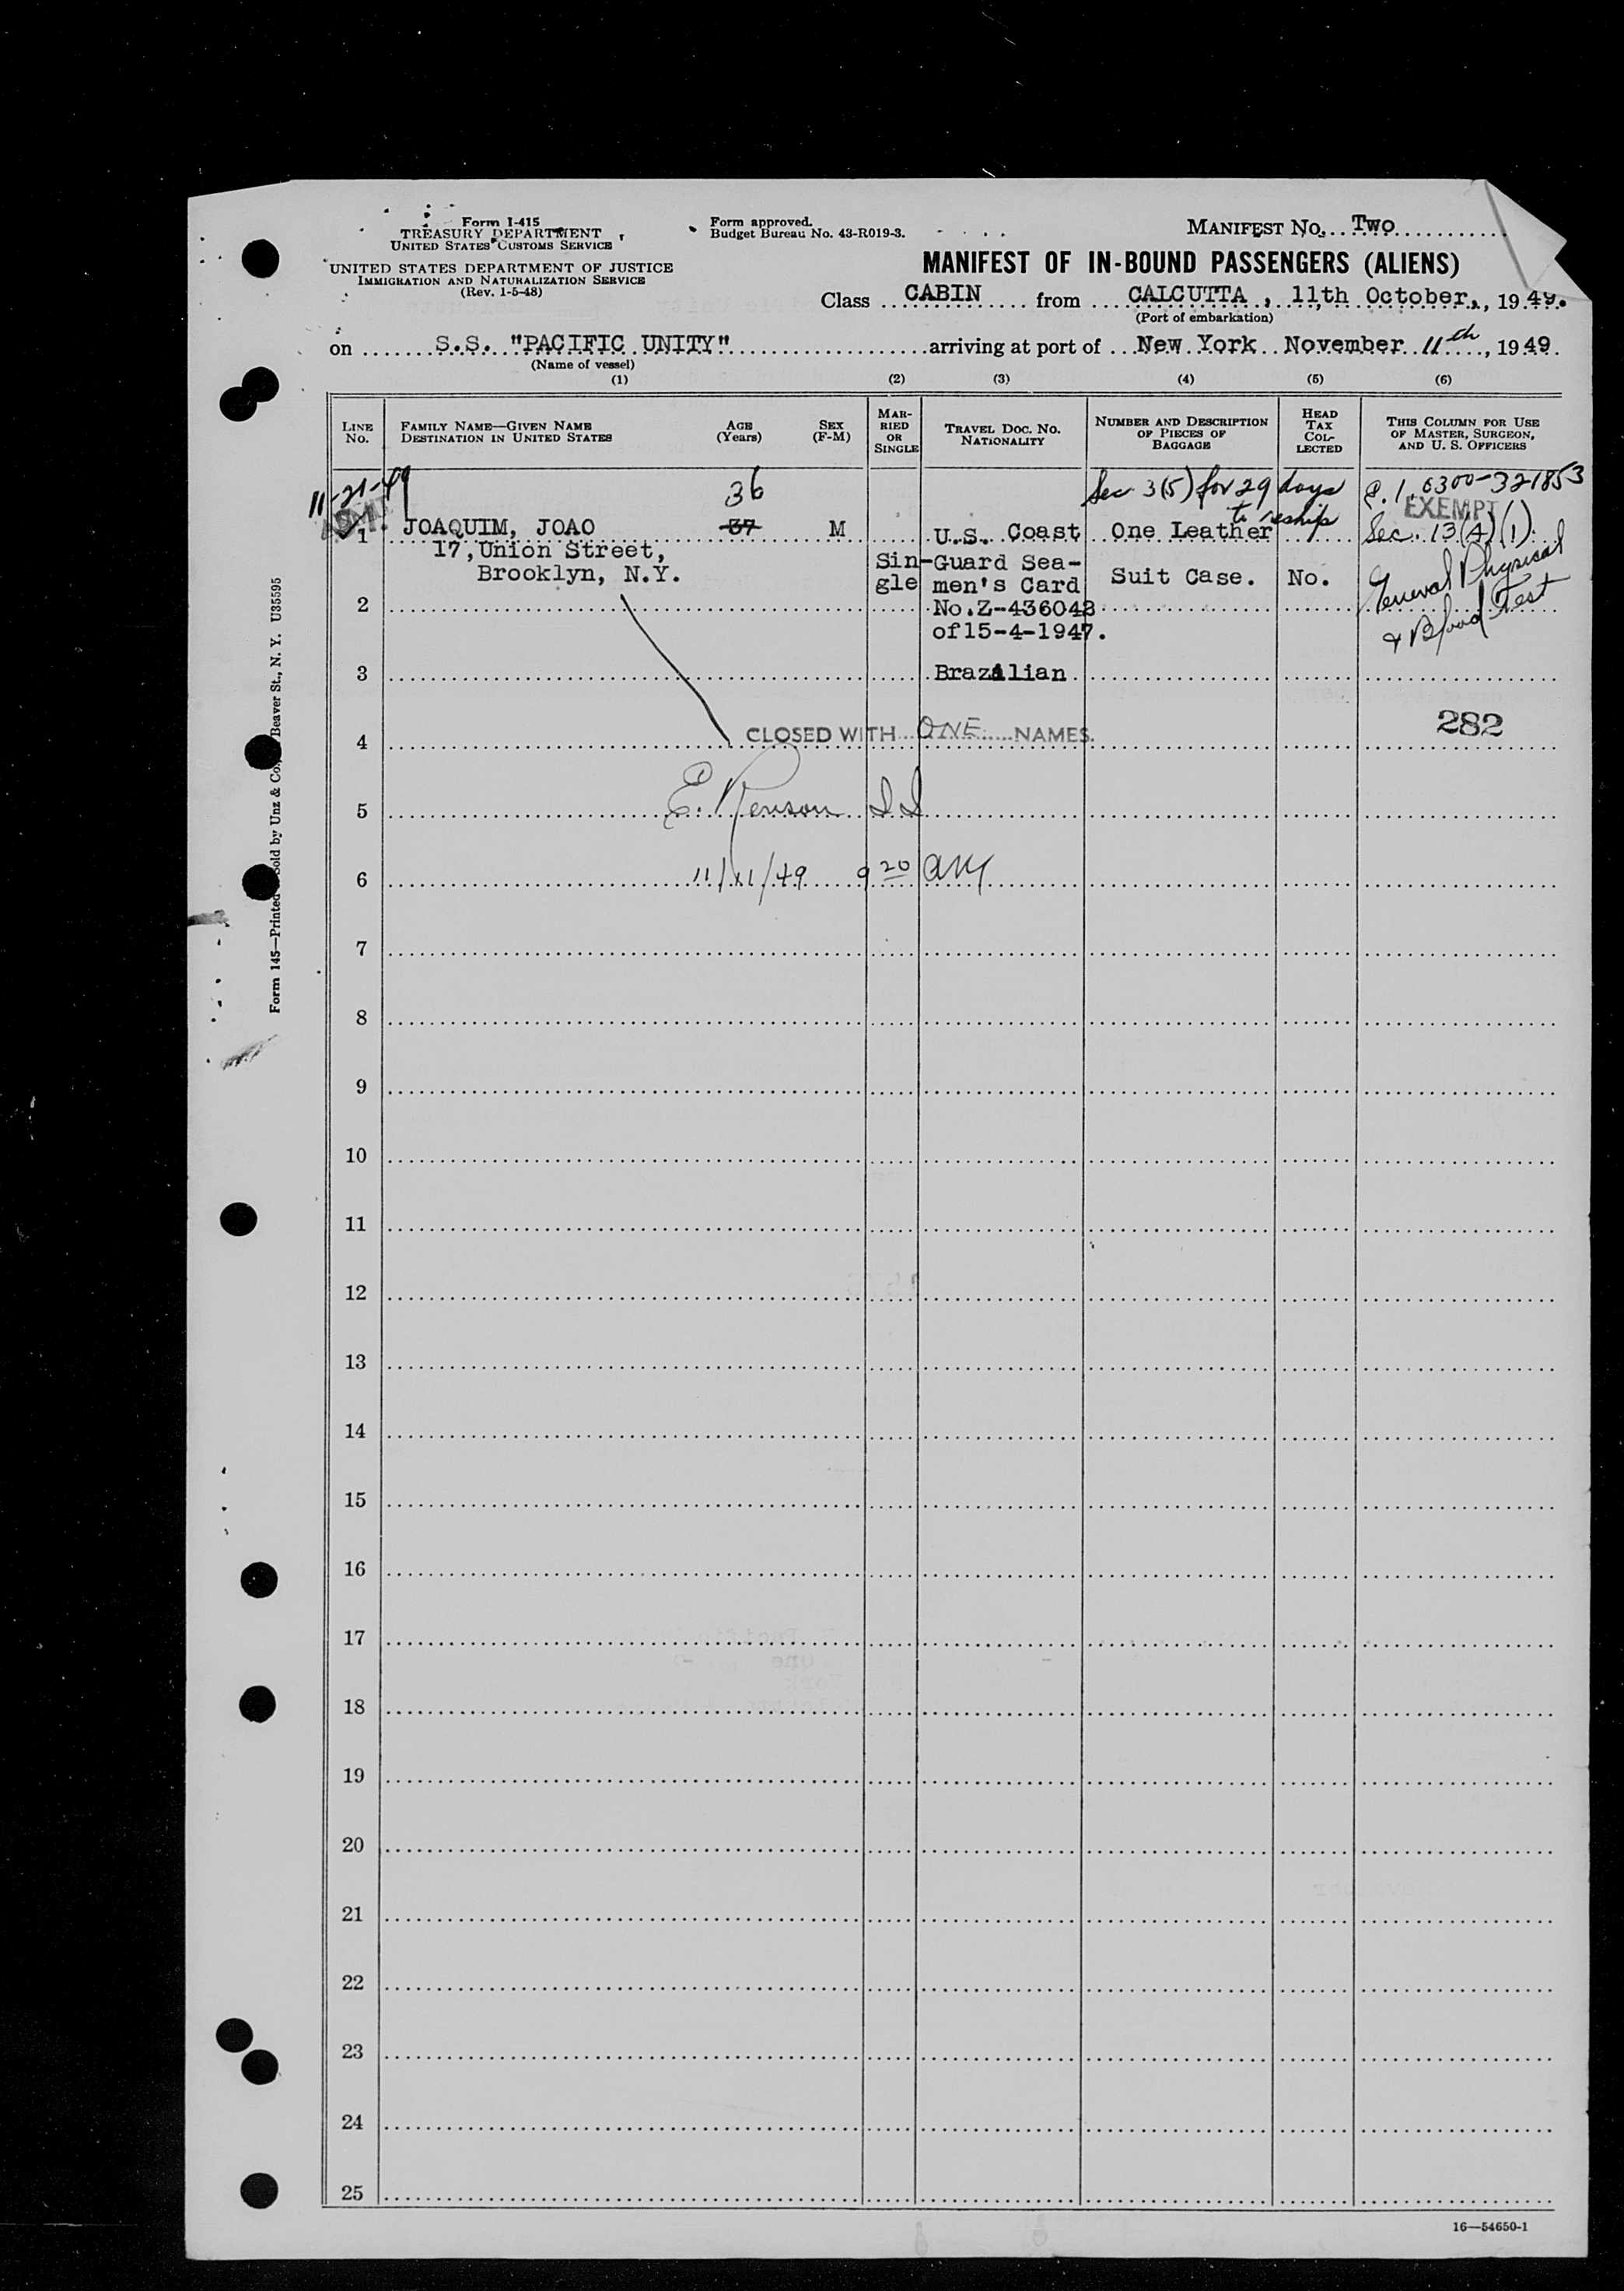 Form I-415
TREASURY DEPARTMENT
UNITED STATES CUSTOMS SERVICE
UNITED STATES DEPARTMENT OF JUSTICE
IMMIGRATION AND NATURALIZATION SERVICE
(Rev. 1-5-48)
Form approved.
Budget Bureau No. 43-R019-3.
MANIFEST No. Two
MANIFEST OF IN-BOUND PASSENGERS (ALIENS)
Class CABIN from CALCUTTA, 11th October, 1949.
(Port of embarkation)
on S.S. "PACIFIC UNITY" arriving at port of New York November 11th, 1949
(Name of vessel)
(1) (2) (3) (4) (5) (6)
LINE No.
FAMILY NAME—GIVEN NAME
DESTINATION IN UNITED STATES
AGE (Years)
SEX (F-M)
MARRIED OR SINGLE
TRAVEL DOC. No. NATIONALITY
NUMBER AND DESCRIPTION OF PIECES OF BAGGAGE
HEAD TAX COLLECTED
THIS COLUMN FOR USE OF MASTER, SURGEON, AND U. S. OFFICERS
11-21-49
36
Sec 3(5) for 29 days
to reship
0300-321853
EXEMPT
Sec. 13(4)(1)
General Physical
& Blood Test
1 JOAQUIM, JOAO 37 M
17, Union Street,
Brooklyn, N.Y.
Sin-
gle
U.S. Coast
Guard Sea-
men's Card
No.Z-436043
of 15-4-1947.
Brazilian
One Leather
Suit Case.
No.
2
3
4 CLOSED WITH ONE NAMES.
282
5 E. Renson
6 11/11/49 9 20 AM
7
8
9
10
11
12
13
14
15
16
17
18
19
20
21
22
23
24
25
16—54650-1
Form 145—Printed Sold by Unz & Co. Beaver St., N. Y. U35595